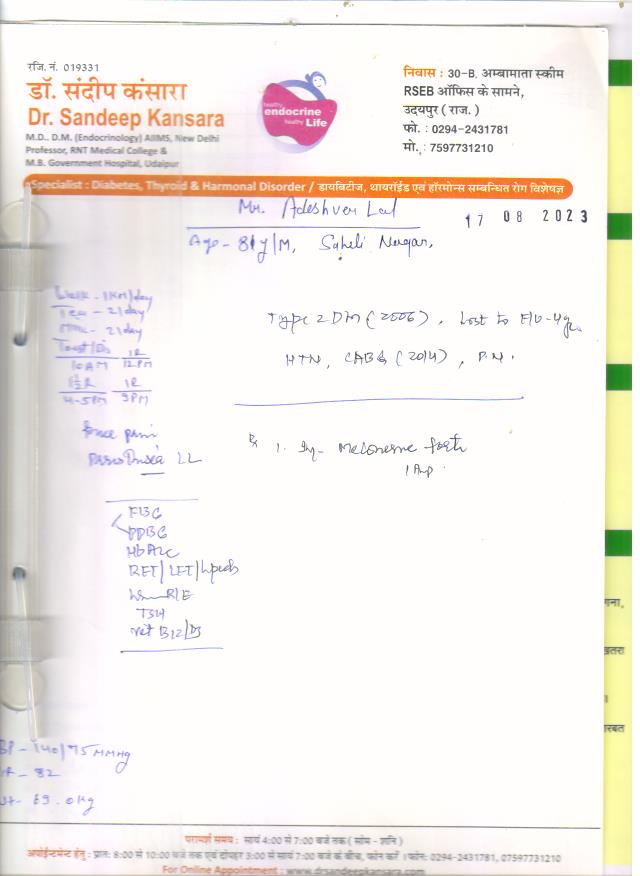 रजि. नं. 019331
डॉ. संदीप कंसारा
Dr. Sandeep Kansara
M.D.. D.M. (Endocrinology) AIIMS, New Delhi
Professor, RNT Medical College &
M.B. Government Hospital, Udaipur
healthy
endocrine
healthy Life
निवास : 30-B. अम्बामाता स्कीम
RSEB ऑफिस के सामने,
उदयपुर ( राज. )
फो. : 0294-2431781
मो. : 7597731210
Specialist : Diabetes, Thyroid & Harmonal Disorder / डायबिटीज, थायरॉईड एवं हॉरमोन्स सम्बन्धित रोग विशेषज्ञ
Mr. Adeshver Lal
17 08 2023
Age - 81y/M, Saheli Nagar,
Walk - 1KM/day
Tea - 2/day
Milk - 2/day
Toast/Bis
10AM
1R
12PM
1½R
4-5PM
1R
9PM
Type 2 DM (2006), Lost to F/U - 4yr
HTN, CABG (2014), P.N.
knee pain
LL
Rx 1. Inj - Meconerve forte
1 Amp
FBG
PPBG
HbA1c
RFT/LFT/Lipids
R/E
TSH
Vit B12/D3
BP - 140/75 MMHg
- 82
Wt - 69.0Kg
परामर्श समय : सायं 4:00 से 7:00 बजे तक ( सोम - शनि )
अपॉईन्टमेन्ट हेतु : प्रात: 8:00 से 10:00 बजे तक एवं दोपहर 3:00 से सायं 7:00 बजे के बीच, फोन करें । फोन: 0294-2431781, 07597731210
For Online Appointment : www.drsandeepkansara.com